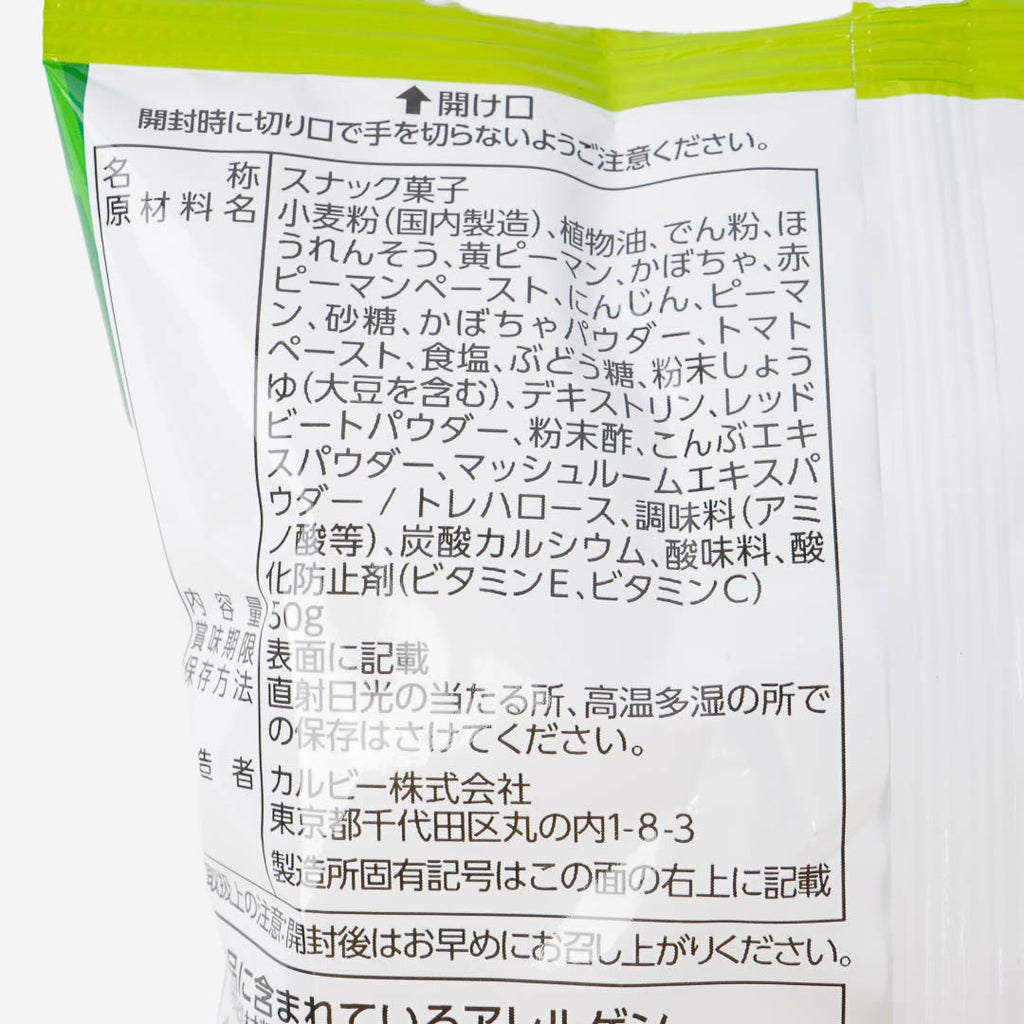 開け口
開封時に切り口で手を切らないようご注意ください。
名称 スナック菓子
原材料名 小麦粉(国内製造)、植物油、でん粉、ほ
うれんそう、黄ピーマン、かぼちゃ、赤
ピーマンペースト、にんじん、ピーマ
ン、砂糖、かぼちゃパウダー、トマト
ペースト、食塩、ぶどう糖、粉末しょう
ゆ(大豆を含む)、デキストリン、レッド
ビートパウダー、粉末酢、こんぶエキ
スパウダー、マッシュルームエキスパ
ウダー / トレハロース、調味料(アミ
ノ酸等)、炭酸カルシウム、酸味料、酸
化防止剤(ビタミンE、ビタミンC)
内容量 50g
賞味期限 表面に記載
保存方法 直射日光の当たる所、高温多湿の所で
の保存はさけてください。
造者 カルビー株式会社
東京都千代田区丸の内1-8-3
製造所固有記号はこの面の右上に記載
取扱上の注意:開封後はお早めにお召し上がりください。
品に含まれているアレルゲン